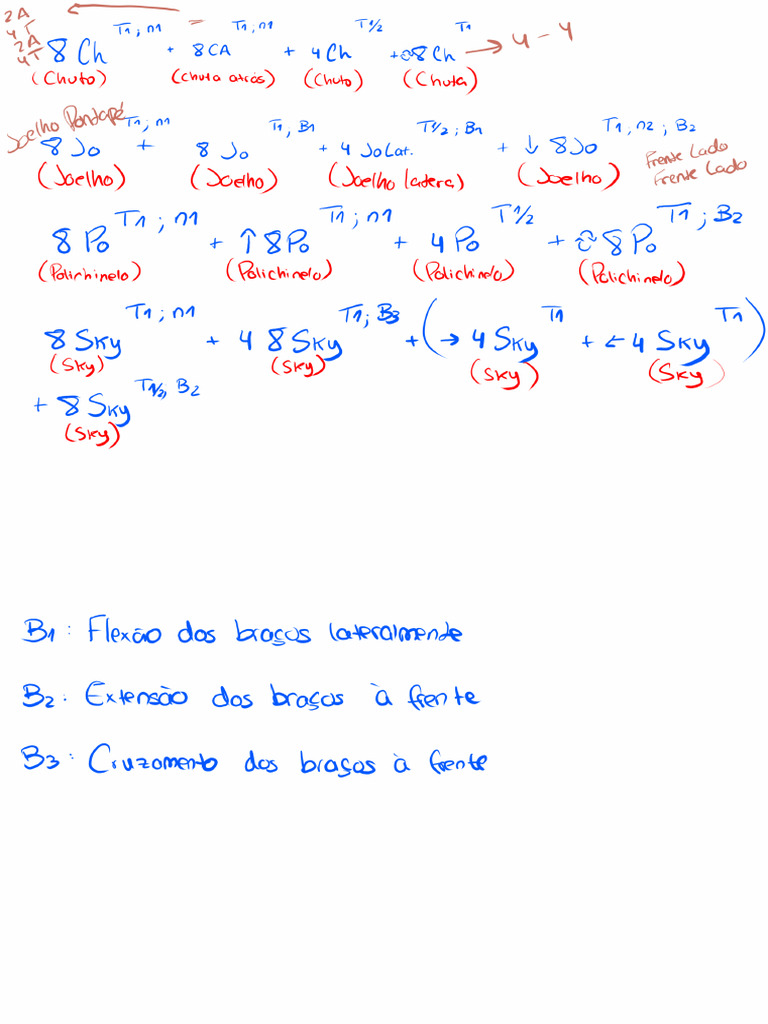 2A
4T
2A
4T
8 Ch T1; n1 + 8CA T1; n1 + 4Ch T1/2 + 8Ch T1 → 4 - 4
(Chuto) (Chuta atrás) (Chuto) (Chuta)
Joelho Pontapé
8 Jo T1; n1 + 8 Jo T1, B1 + 4 JoLat. T1/2; B1 + ↓ 8Jo T1, n2; B2
Frente Lado
Frente Lado
(Joelho) (Joelho) (Joelho latera) (Joelho)
8 Po T1; n1 + ↑ 8Po T1; n1 + 4 Po T1/2 + 8 Po T1; B2
(Polichinelo) (Polichinelo) (Polichinelo) (Polichinelo)
8 Sky T1; n1 + 4 8 Sky T1; B3 + (→ 4 Sky T1 + ← 4 Sky T1)
(Sky) (Sky) (Sky) (Sky)
+ 8 Sky T1/2, B2
(Sky)
B1: Flexão dos braços lateralmente
B2: Extensão dos braços à frente
B3: Cruzamento dos braços à frente